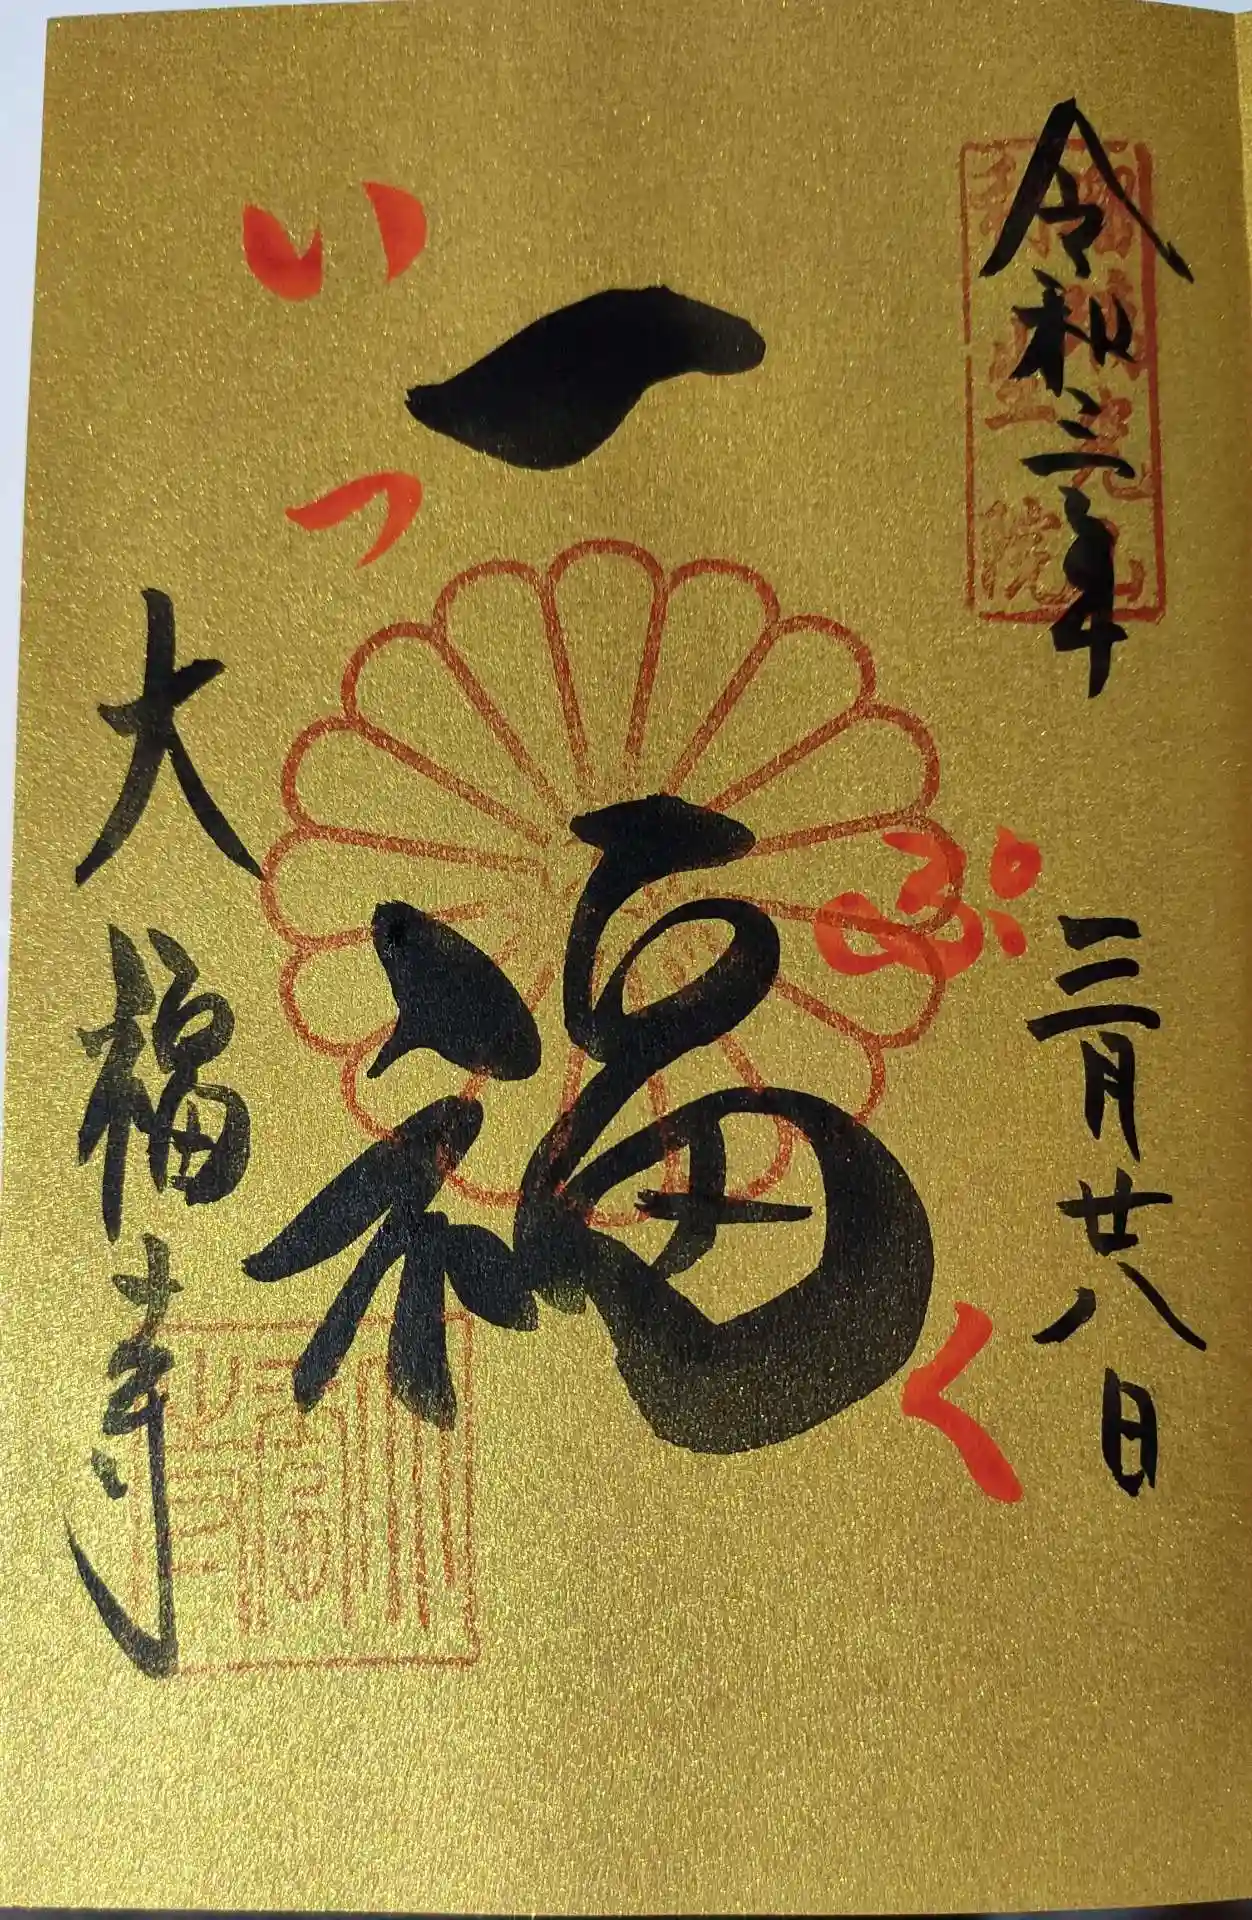 令和三年
三月廿八日
一福
いっ
ぷく
大福寺